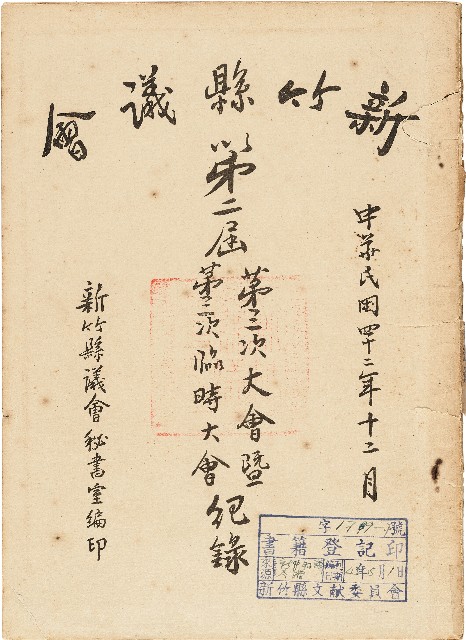 新竹縣議會
中華民國四十二年十二月
第二屆
第三次大會暨
第三次臨時大會
紀錄
新竹縣議會秘書室編印
字號
書籍登記印
來源 年5月1日
新竹縣文献委員會